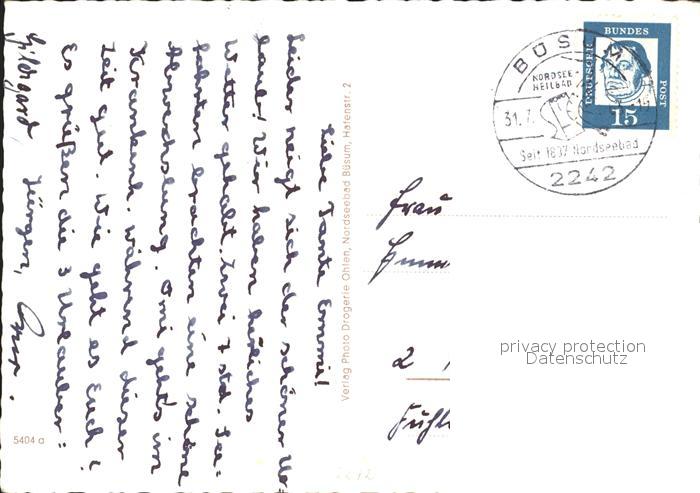 Liebe Tante Emmi!
Leider neigt sich der schöne Ur-
laub! Wir haben herrliches
Wetter gehabt. Zwei 7 std. See-
fahrten brachten eine schöne
Abwechslung. Omi geht's im
Krankenh. während dieser
Zeit gut. Wie geht es Euch?
Es grüßen die 3 Urlauber:
Hildegard, Jürgen,
5404 a
Verlag Photo Drogerie Ohlen, Nordseebad Büsum, Hafenstr. 2
BÜSUM
NORDSEE-
HEILBAD
31.7.
Seit 1837 Nordseebad
2242
DEUTSCHE
BUNDES
POST
15
Frau
2
privacy protection
Datenschutz